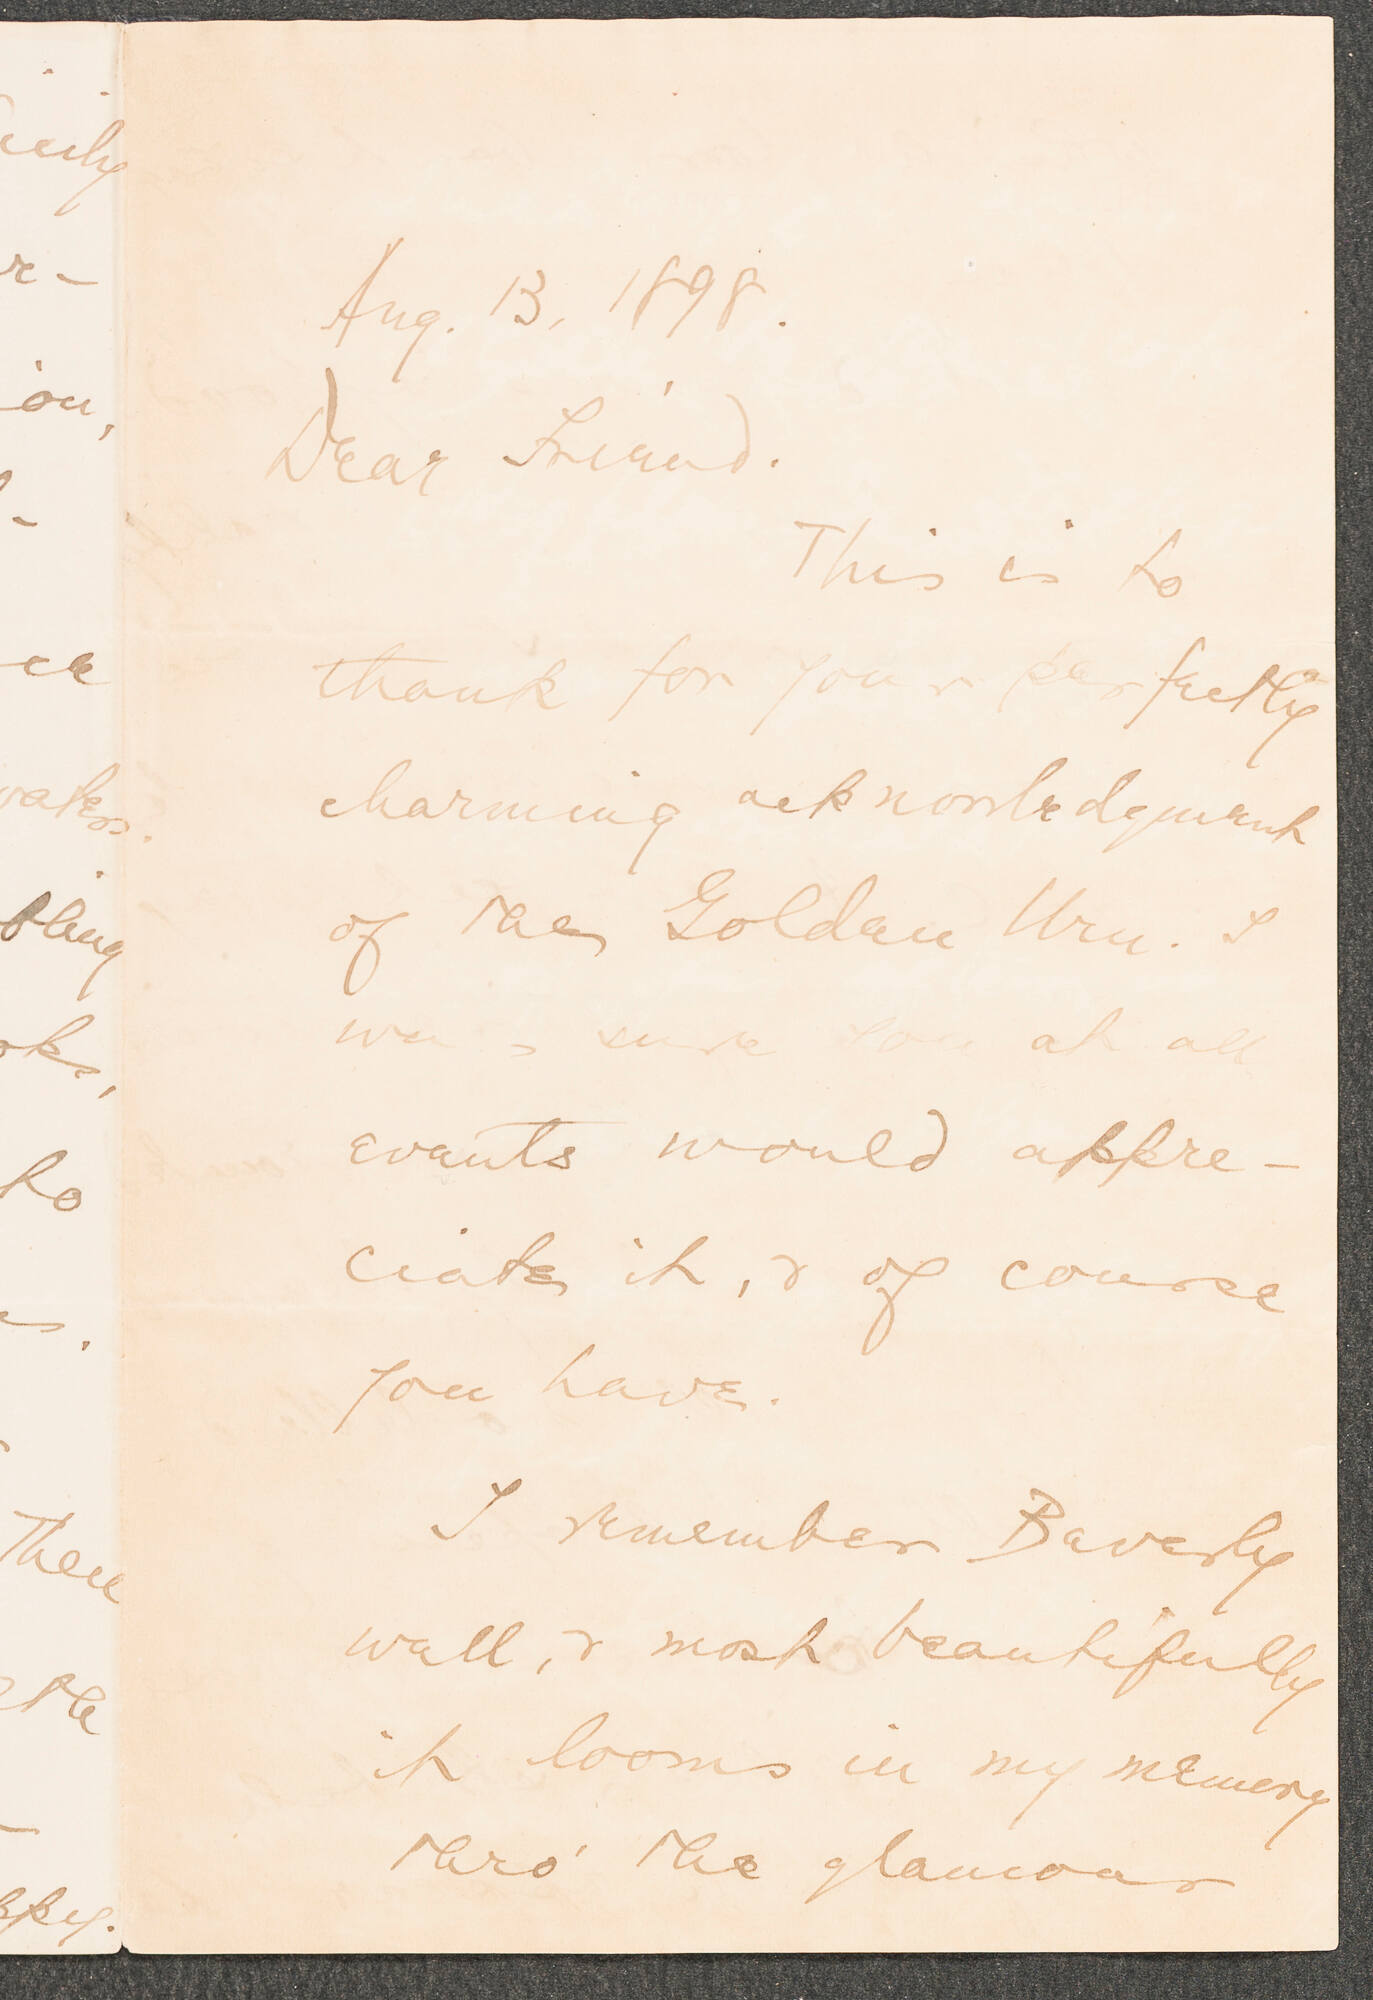 Aug. 13, 1898.
Dear Friend.
This is to
thank for your perfectly
charming acknowledgment
of the Golden Urn. I
was sure you at all
events would appre-
ciate it, & of course
you have.
I remember Beverly
well, & most beautifully
it looms in my memory
thro' the glamour